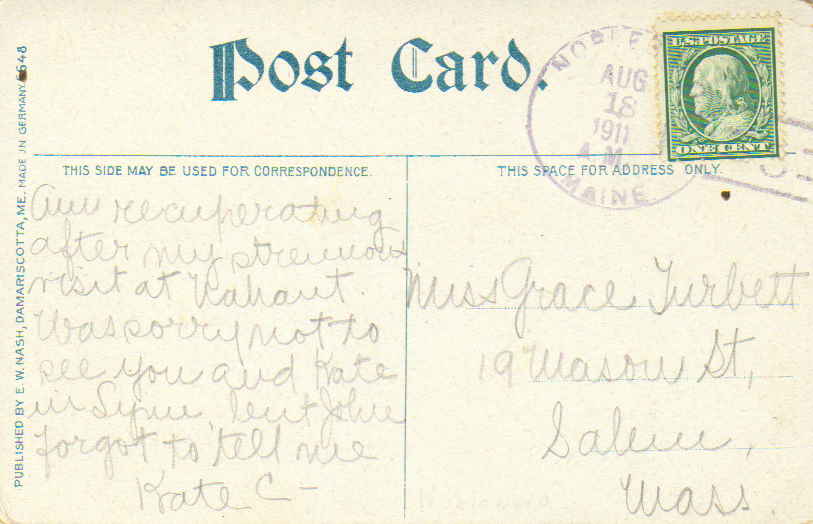 Post Card.
THIS SIDE MAY BE USED FOR CORRESPONDENCE.
THIS SPACE FOR ADDRESS ONLY.
PUBLISHED BY E. W. NASH, DAMARISCOTTA, ME. MADE IN GERMANY 6648
NOBLE
AUG
18
1911
A.M.
MAINE
U.S. POSTAGE
ONE CENT
Am recuperating
after my strenuous
visit at Nahant.
Was sorry not to
see you and Kate
in Lynn, but John
forgot to tell me
Kate C -
Miss Grace Turbett
19 Mason St,
Salem,
Mass.